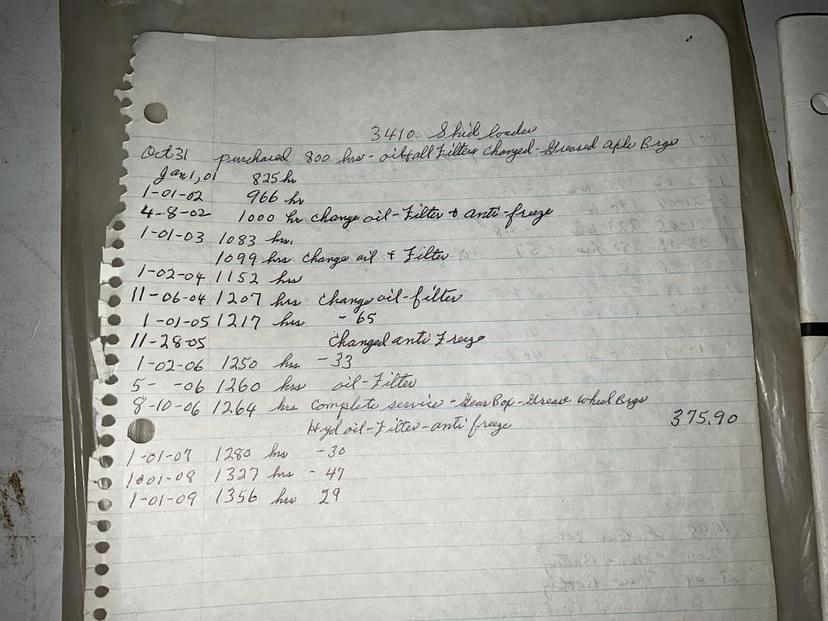 3410 Skid loader
Oct 31 purchased 800 hrs - oil & all Filters Changed - Greased Axle Brgs
Jan 1, 01 825 hr
1-01-02 966 hr
4-8-02 1000 hr Change oil - Filter & anti-freeze
1-01-03 1083 hrs.
1099 hrs Change oil & Filter
1-02-04 1152 hrs
11-06-04 1207 hrs Change oil-filter
1-01-05 1217 hrs - 65
11-28-05 Changed anti Freeze
1-02-06 1250 hrs - 33
5- -06 1260 hrs oil-Filter
8-10-06 1264 hrs Complete service - Gear Box - Grease wheel Brgs
Hyd oil-Filter-anti freeze 375.90
1-01-07 1280 hrs - 30
1-01-08 1327 hrs - 47
1-01-09 1356 hrs 29